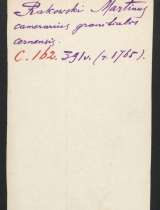 Rakowski Martinus
camerarius granicialis
cernensis.
C. 162. 391v. (r. 1765).